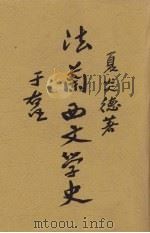 夏炎德著
法兰西文学史
于右任